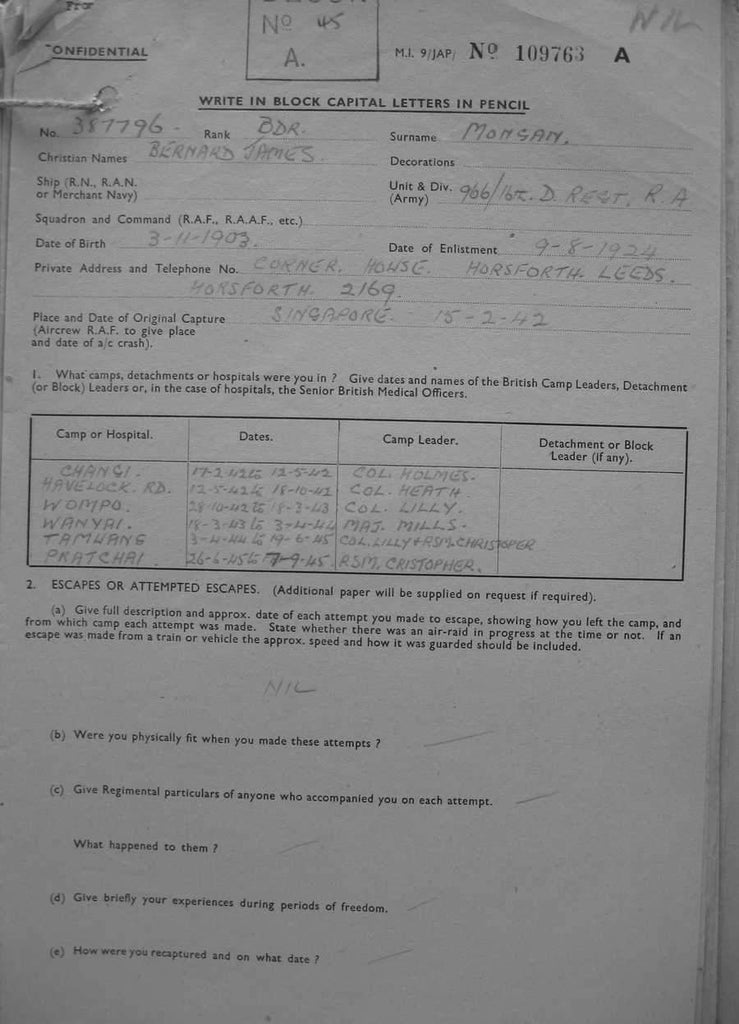 Nº 45
NIL
CONFIDENTIAL
A.
M.I. 9/JAP/ Nº 109763 A
WRITE IN BLOCK CAPITAL LETTERS IN PENCIL
No. 387796 - Rank BDR. Surname MONGAN.
Christian Names BERNARD JAMES. Decorations
Ship (R.N., R.A.N. or Merchant Navy)
Unit & Div. (Army) 966/ D. REGT, R.A
Squadron and Command (R.A.F., R.A.A.F., etc.)
Date of Birth 3-11-1903. Date of Enlistment 9-8-1924
Private Address and Telephone No. CORNER. HOUSE. HORSFORTH LEEDS.
HORSFORTH. 2169.
Place and Date of Original Capture SINGAPORE. 15-2-42
(Aircrew R.A.F. to give place
and date of a/c crash).
1. What camps, detachments or hospitals were you in ? Give dates and names of the British Camp Leaders, Detachment
(or Block) Leaders or, in the case of hospitals, the Senior British Medical Officers.
Camp or Hospital. Dates. Camp Leader. Detachment or Block Leader (if any).
CHANGI. 17-2-42 to 12-5-42 COL. HOLMES.
HAVELOCK. RD. 12-5-42 to 18-10-42 COL. HEATH.
WOMPO. 28-10-42 to 18-3-43 COL. LILLY.
WANYAI. 18-3-43 to 3-4-44 MAJ. MILLS-
TAMUANG 3-4-44 to 19-6-45 COL. LILLY + RSM. CHRISTOPER
PRATCHAI. 26-6-45 to 7-9-45. RSM. CRISTOPHER.
2. ESCAPES OR ATTEMPTED ESCAPES. (Additional paper will be supplied on request if required).
(a) Give full description and approx. date of each attempt you made to escape, showing how you left the camp, and
from which camp each attempt was made. State whether there was an air-raid in progress at the time or not. If an
escape was made from a train or vehicle the approx. speed and how it was guarded should be included.
NIL
(b) Were you physically fit when you made these attempts ?
(c) Give Regimental particulars of anyone who accompanied you on each attempt.
What happened to them ?
(d) Give briefly your experiences during periods of freedom.
(e) How were you recaptured and on what date ?